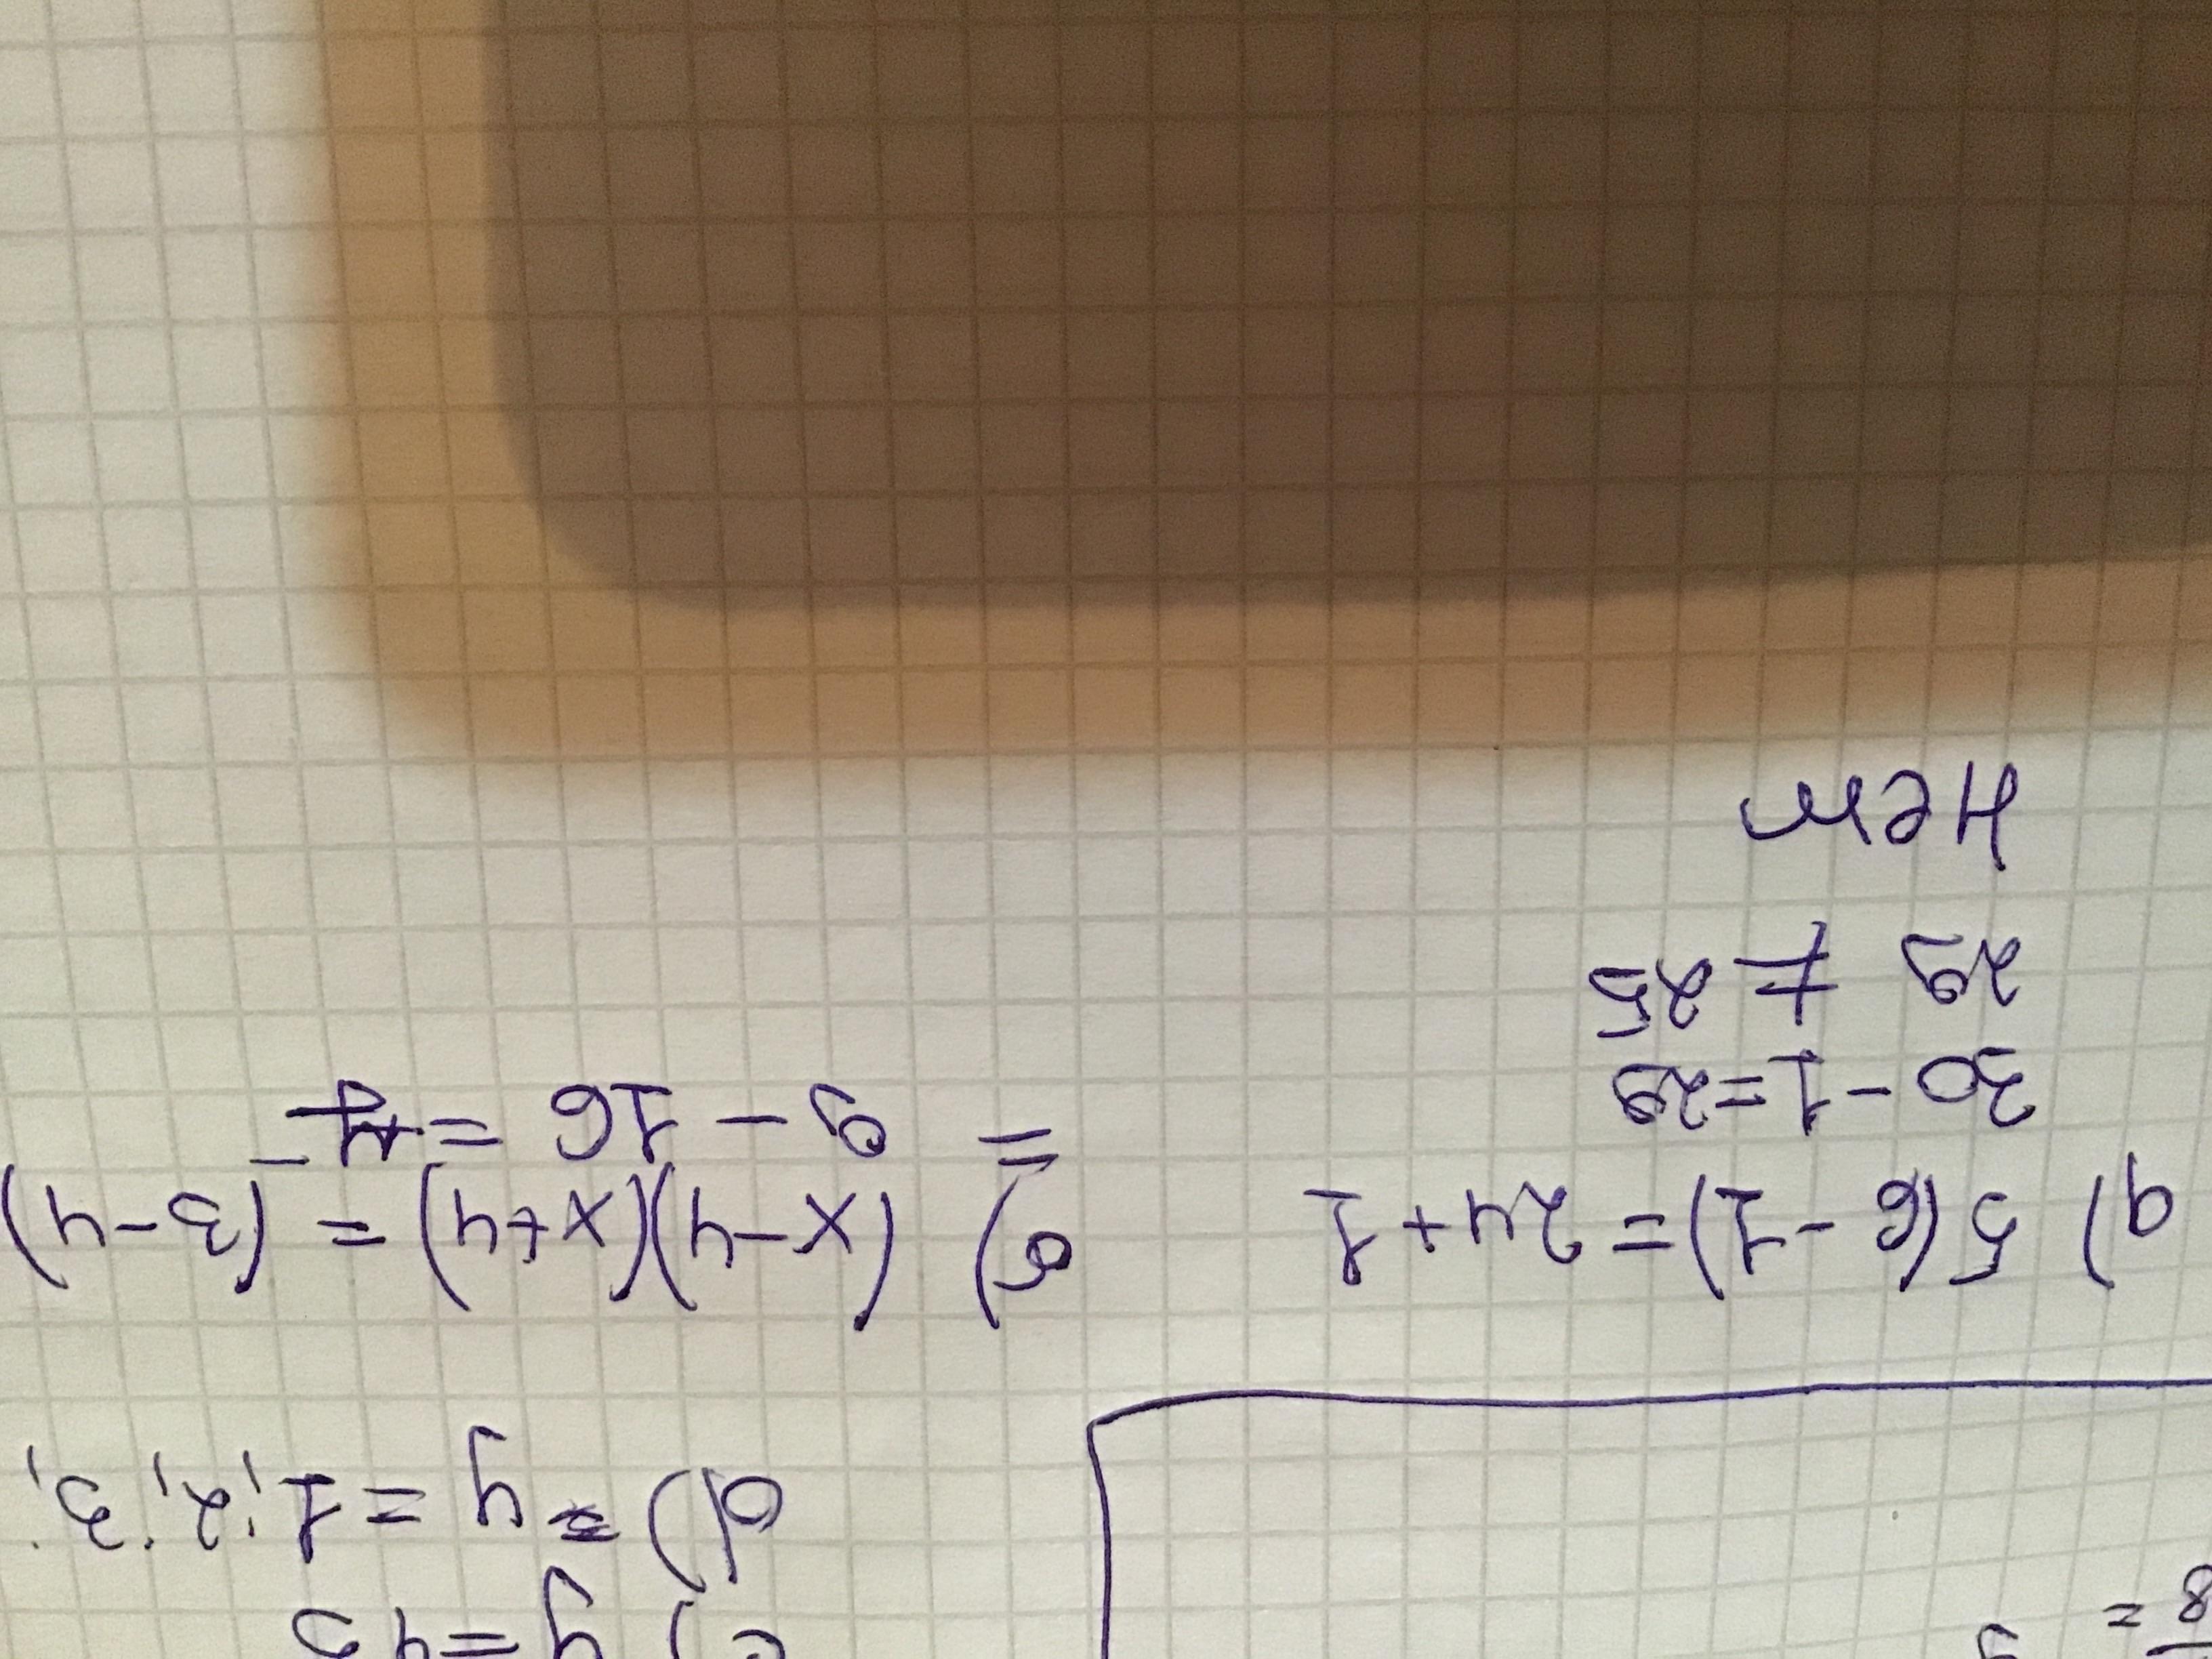 d) y = 1; 2; 3;
9) 5(6-1)=24+1
30-1=29
29 ≠ 25
Нет
б) (x-4)(x+4) = (3-4)
= 9-16 = -7